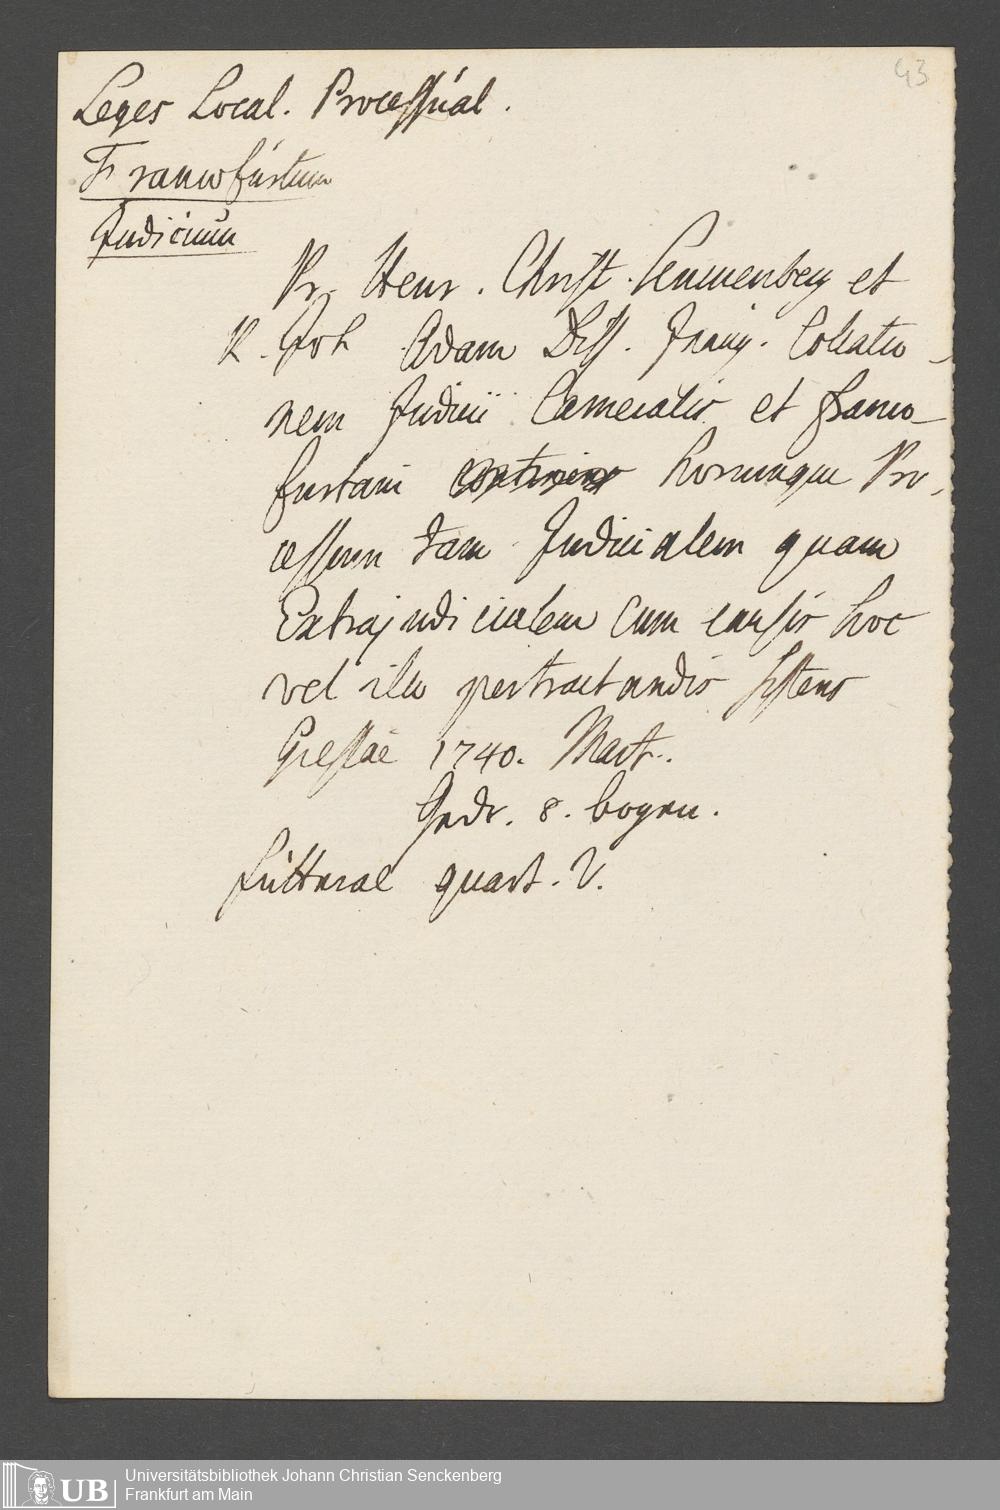 43
Leges Local. Processual.
Francofurtum
Judicium
Pr. Henr. Christ. Senckenberg et
R. Joh Adam Diss. Inaug. Collatio-
nem Judicii Cameralis et Franco-
furtani horumque Pro-
cessum tam Judicialem quam
Extrajudicialem cum causis hoc
vel illo pertractandis sistens
Giessae 1740. Mart.
Gedr. 8. bogen.
futteral quart. V.
UB
Universitätsbibliothek Johann Christian Senckenberg
Frankfurt am Main